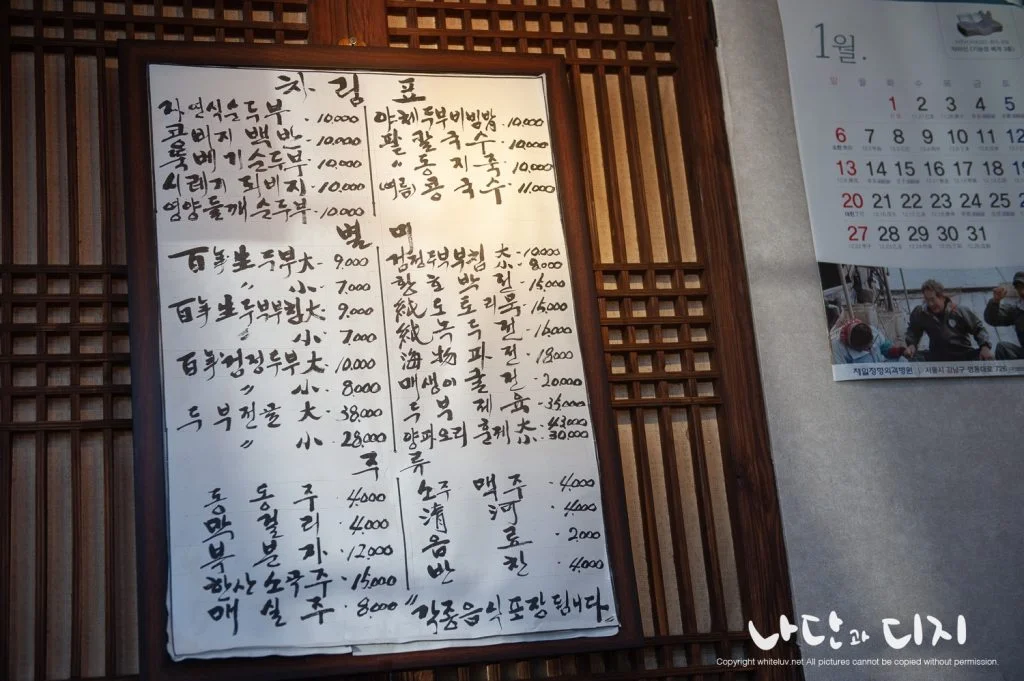 차림표
자연식순두부 10,000
콩비지 백반 10,000
뚝베기순두부 10,000
시레기 되비지 10,000
영양들깨순두부 10,000
야채두부비빔밥 10,000
팥칼국수 10,000
〃 동지죽 10,000
(여름) 콩국수 11,000
별미
百年生두부 大 9,000
〃 小 7,000
百年生두부부침 大 9,000
〃 小 7,000
百年검정두부 大 10,000
〃 小 8,000
두부전골 大 38,000
〃 小 28,000
검정두부부침 大 10,000
小 8,000
호박전 15,000
純도토리묵 15,000
純녹두전 16,000
海物파전 18,000
매생이굴전 20,000
두부제육 35,000
양파오리훈제 大 43,000
小 30,000
주류
동동주 4,000
막걸리 4,000
복분자 12,000
한산소곡주 15,000
매실주 8,000
소주 맥주 4,000
淸河 4,000
음료 2,000
반찬 4,000
"각종음식포장됩니다"
1월.
일 월 화 수 목 금 토
1 2 3 4 5
6 7 8 9 10 11 12
13 14 15 16 17 18 19
20 21 22 23 24 25
27 28 29 30 31
제일정형외과병원 | 서울시 강남구 영동대로 726
나단과 디지
Copyright whiteluv.net All pictures cannot be copied without permission.